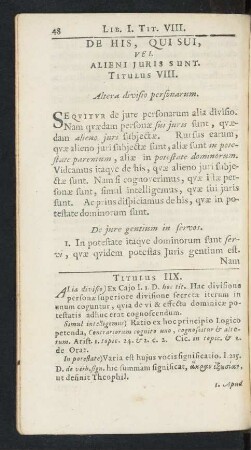 48 LIB. I. TIT. VIII.
DE HIS, QUI SUI,
VEL
ALIENI JURIS SUNT.
TITULUS VIII.
Altera divisio personarum.
SEQUITUR de jure personarum alia divisio.
Nam quædam personæ sui juris sunt, quæ-
dam alieno juri subjectæ. Rursus earum,
quæ alieni juri subjectæ sunt, aliæ sunt in pote-
state parentum, aliæ in potestate dominorum.
Videamus itaqve de his, quæ alieno juri subje-
ctæ sunt. Nam si cognoverimus, quæ istæ per-
sonæ sunt, simul intelligemus, quæ sui juris
sunt. Ac prius dispiciamus de his, quæ in po-
testate dominorum sunt.
De jure gentium in servos.
1. In potestate itaqve dominorum sunt ser-
vi, quæ qvidem potestas Juris gentium est.
Nam
TITULUS IIX.
ALia divisio) Ex Cajo l. 1. D. hoc tit. Hac divisione
personæ superiore divisione secreta iterum in
unum coguntur, qua de vi & effectu dominicæ po-
testatis adhuc erat cognoscendum.
Simul intelligemus) Ratio ex hoc principio Logico
petenda, Contrariorum cognito uno, cognoscitur & alte-
rum. Arist. 1. topic. 24. & 2. c. 2. Cic. in topic. & 2.
de Orat.
In potestate) Varia est hujus vocis significatio. l. 215.
D. de verb. sign. hic summam significat,
ut definit Theophil.
1. Apud